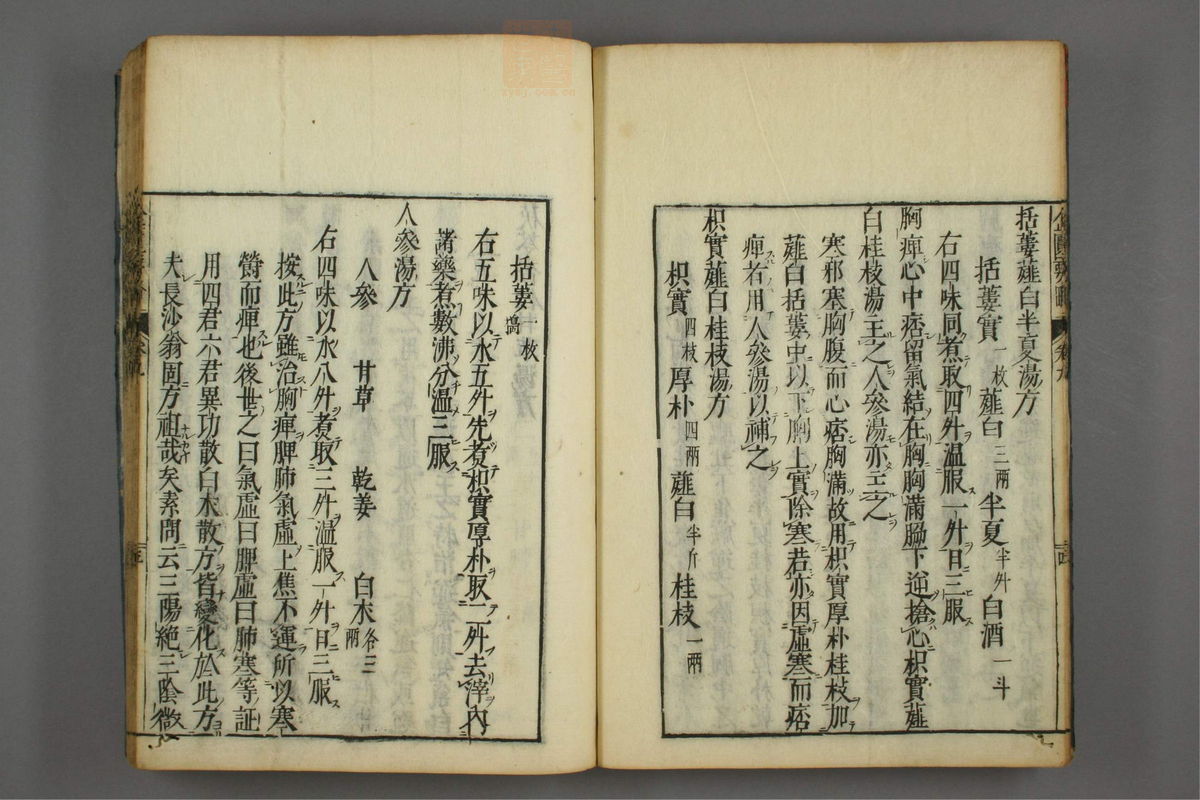 括蔞薤白半夏湯方
括蔞實一枚 薤白三兩 半夏半升 白酒一斗
右四味同煮取四升温服一升日三服
胸痺心中痞留氣結在胸胸滿脇下逆搶心枳實薤
白桂枝湯主之人參湯亦主之
寒邪寒胸腹而心痞胸滿故用枳實厚朴桂枝加
薤白括蔞中以下胸上實除寒若亦因虛寒而痞
痺右用人參湯以補之
枳實薤白桂枝湯方
枳實四枚 厚朴四兩 薤白半斤 桂枝一兩
括蔞一枚
右五味以水五升先煮枳實厚朴取二升去滓內
諸藥煮數沸分温三服
人參湯方
人參 甘草 乾姜 白朮各三兩
右四味以水八升煮取三升温服一升日三服
按此方雖治胸痺脾肺氣虛上焦不運所以寒
而痺也後世之曰氣虛曰脾虛曰肺寒等証
用四君六君異功散白朮散方皆變化於此方
夫長沙翁固方祖哉矣素問云三陽絶三陰微